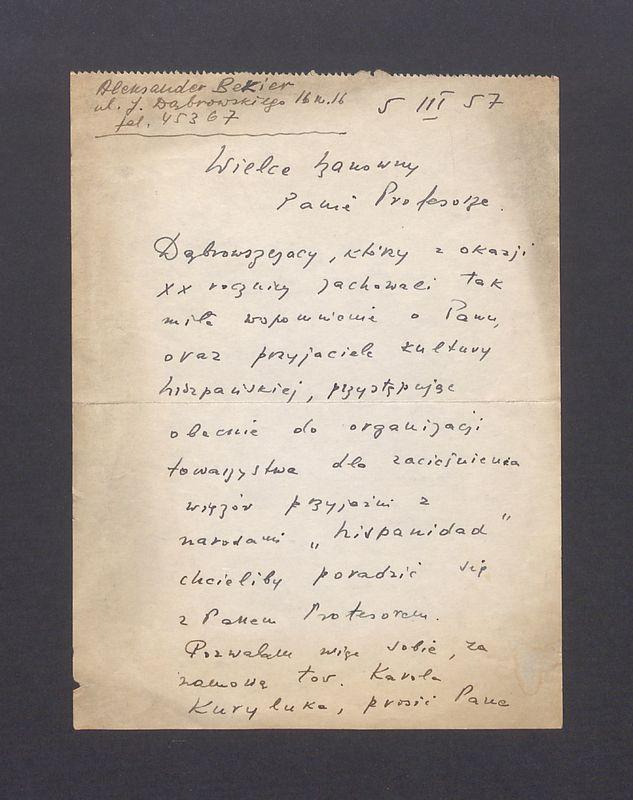 Aleksander Bekier
ul. J. Dąbrowskiego 16 m. 16
tel. 45367
5 III 57
Wielce Szanowny
Panie Profesorze.
Dąbrowszczacy, którzy z okazji
XX rocznicy zachowali tak
miłe wspomnienie o Panu,
oraz przyjaciele kultury
hiszpańskiej, przystępując
obecnie do organizacji
towarzystwa dla zacieśnienia
więzów przyjaźni z
narodami „hispanidad"
chcieliby poradzić się
z Panem Profesorem.
Pozwalam więc sobie, za
namową tow. Karola
Kuryluka, prosić Pana